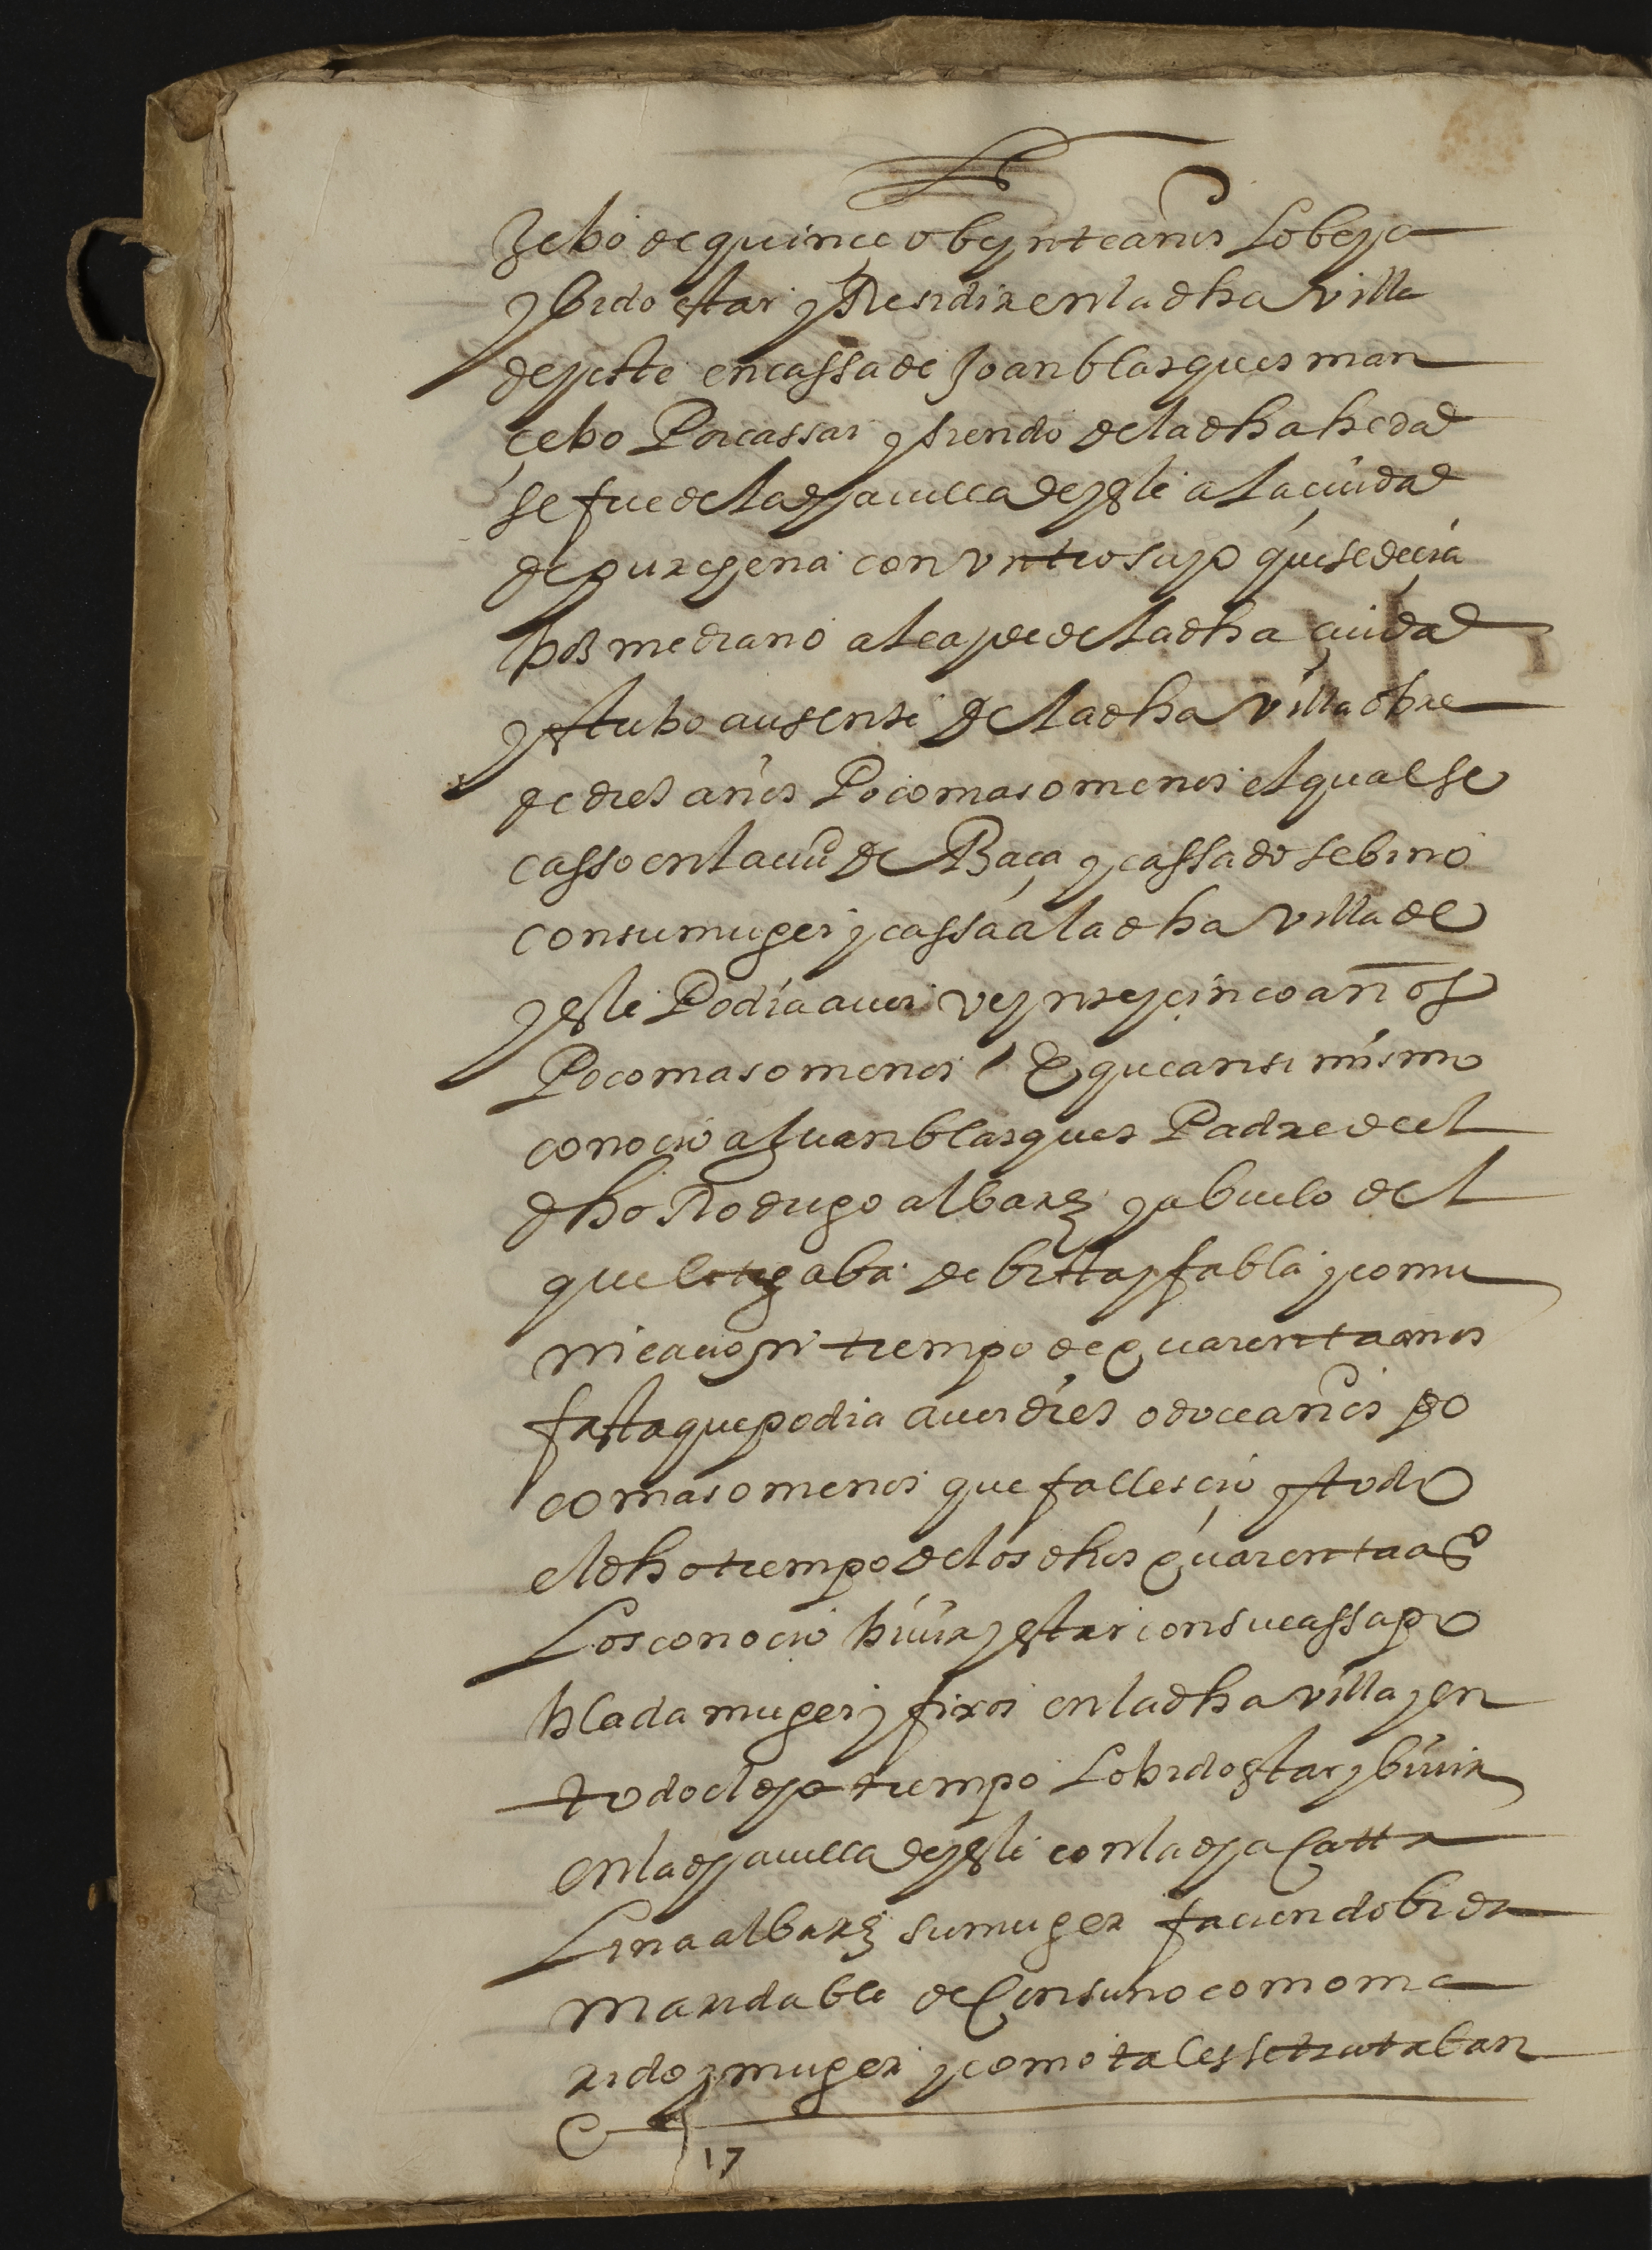 zebo de quince o beynte años lo beya
y bido estar y Residir en la dha villa
de yeste en cassa de Joan blasques man
çebo Por cassar y siendo de la dha hedad
se fue de la dha villa de yeste a la ciudad
de purchena con vn tio suyo que se deçia
mediano alcayde de la dha çiudad
y estubo ausente de la dha villa obre
de dies años Poco mas o menos el qual se
casso en la ciud de Baça y cassado se bino
con su muger y cassa a la dha villa de
yeste Podia auer veynte y cinco años
Poco mas o menos E que ansi mismo
conocio a Juan blasques Padre de el
dho Rodrigo albarz y abuelo del
que litigaba de bista y fabla y comu
nicacion tiempo de quarenta años
fasta que podia auer dies o doce años po
co mas o menos que fallescio y todo
el dho tiempo de los dhos quarenta as
Los conocio biuir y estar con su cassa po
blada muger y fixos en la dha villa y en
todo el dho tiempo lo bido estar y biuir
en la dha villa de yeste con la dha Catta
Lina albarz su muger faciendo bida
maridable de Consuno como ma
rido y muger y como tales se tratatan
17